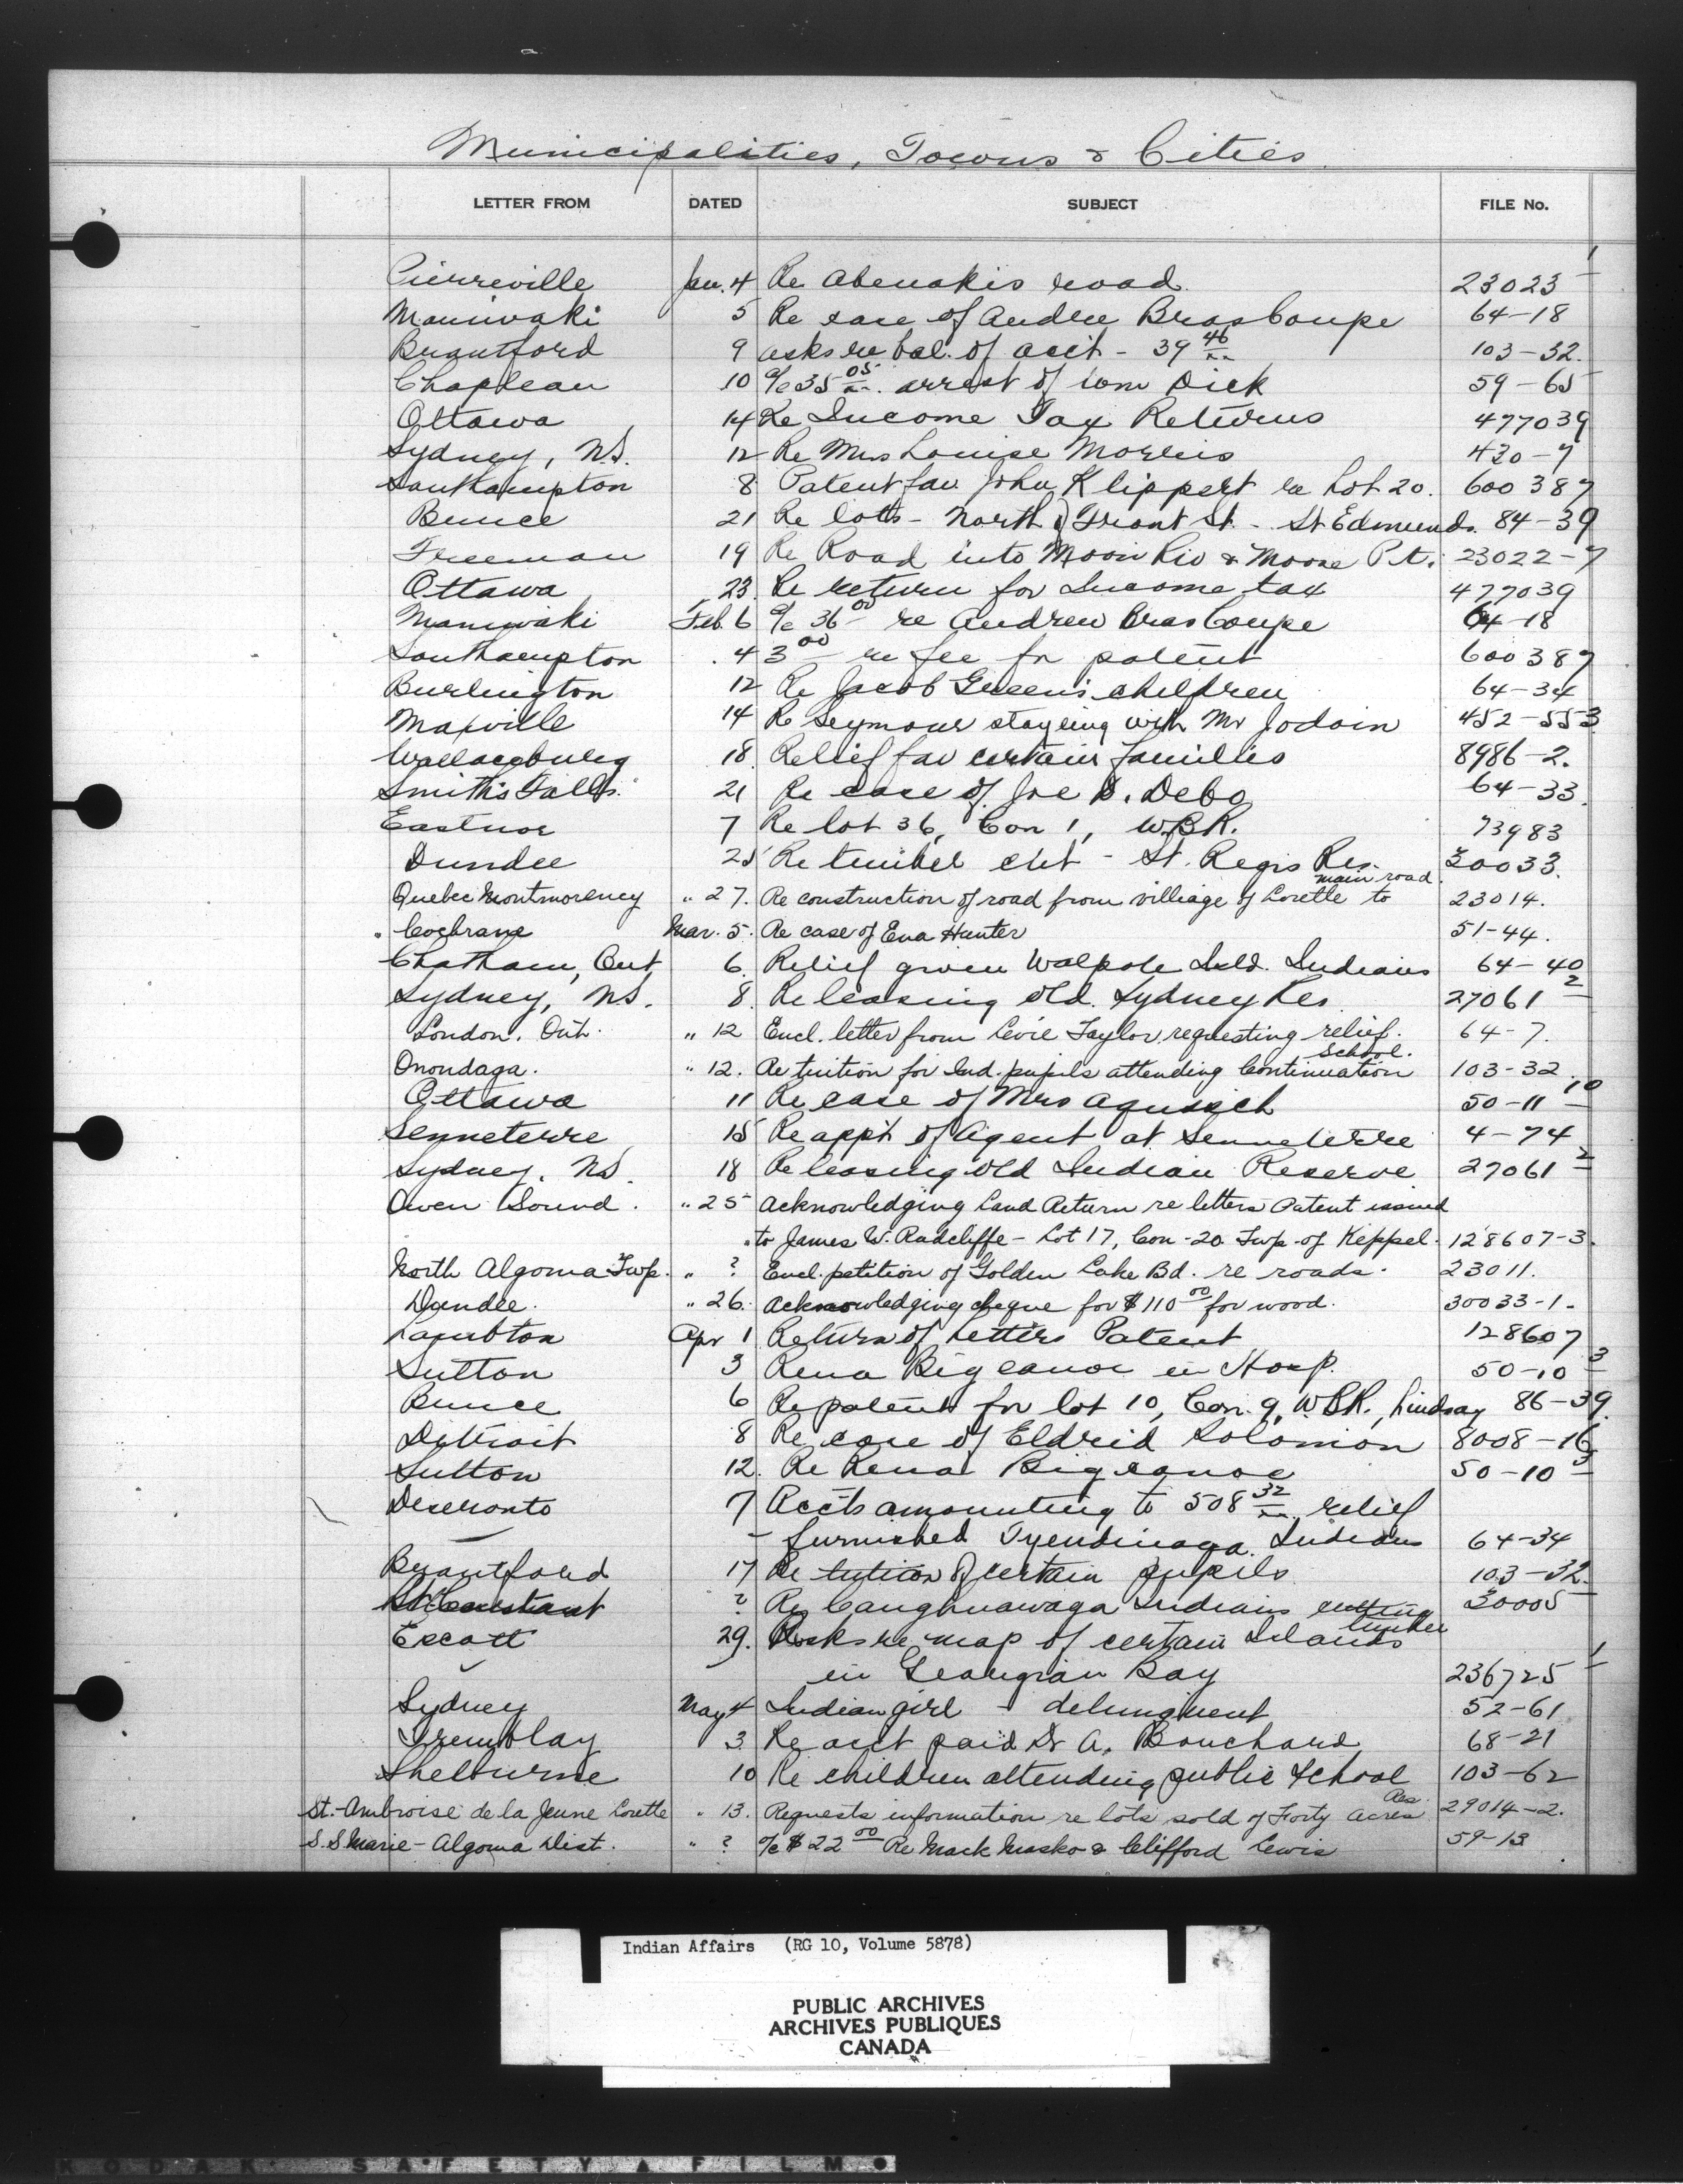 Municipalities, Towns & Cities
LETTER FROM DATED SUBJECT FILE No.
Pierreville Jan. 4 Re Abenakis road 23023 - 1
Maniwaki 5 Re case of Andrew BrasCoupe 64-18
Brantford 9 asks re bal. of acct - 39 46/xx 103-32.
Chapleau 10 a/c 35 05/xx. arrest of Wm Dick 59-65
Ottawa 14 Re Income Tax Returns 477039
Sydney, N.S. 12 Re Mrs Louise Morris 430-7
Southampton 8 Patent fav John Klippert re Lot 20. 600387
Bruce 21 Re lots - North of Front St. - St Edmunds. 84-39
Freeman 19 Re Road into Moon Riv & Moose Pt. 23022-7
Ottawa 23. Re return for Income tax 477039
Maniwaki Feb. 6 a/c 36 00 re Andrew BrasCoupe 64-18
Southampton 4 3 00 re fee for patent 600387
Burlington 12 Re Jacob Green's children 64-34
Maxville 14 Re Seymour staying with Mr Jodoin 452-553
Wallaceburg 18. Relief fav certain families 8986-2.
Smith's Falls. 21 Re case of Joe D. Debo 64-33.
Eastnor 7 Re lot 36, Con 1, W.B.R. 73983
Dundee 25 Re timber cut - St. Regis Res. 30033.
Quebec Montmorency " 27. Re construction of road from villiage of Lorette to main road. 23014.
Cochrane Mar. 5. Re case of Eva Hunter 51-44.
Chatham, Ont 6. Relief given Walpole Isld. Indians 64-40
Sydney, N.S. 8. Re leasing old Sydney Res 27061 - 2
London, Ont. " 12 Encl. letter from Levie Taylor, requesting relief. 64-7.
Onondaga. " 12. Re tuition for Ind. pupils attending Continuation School. 103-32.
Ottawa 11 Re case of Mrs 50-11 - 10
Senneterre 15 Re app't of Agent at Senneterre 4-74
Sydney, N.S. 18 Re leasing old Indian Reserve 27061 - 2
Owen Sound. " 25 Acknowledging Land Return re letters Patent issued
" to James W. Radcliffe - Lot 17, Con - 20 Twp. of Keppel. 128607-3.
North Algoma Twp. " ? Encl. petition of Golden Lake Bd. re roads. 23011.
Dundee. " 26. Acknowledging cheque for $110 00 for wood. 30033-1.
Lambton Apr 1 Return of Letters Patent 128607
Sutton 3 Rena Bigcanoe in Hosp. 50-10 - 3
Bruce 6 Re patent for lot 10, Con. 9, W.B.R., Lindsay 86-39.
Detroit 8 Re case of Eldrid Solomon 8008-16
Sutton 12. Re Rena Bigcanoe 50-10 - 3
Deseronto 7 Acc'ts amounting to 508 32/xx relief
furnished Tyendinaga Indians 64-34
Brantford 17 Re tuition of certain pupils 103-32.
St. Constant ? Re Caughnawaga Indians cutting timber 30005
Escott 29. Asks re map of certain Islands
in Georgian Bay 236725 - 1
Sydney May 4 Indian girl - delinquent 52-61
Tremblay 3. Re acct paid Dr A. Bouchard 68-21
Shelburne 10 Re children attending public School 103-62
St.-Ambroise de la Jeune Lorette " 13. Requests information re lots sold of Forty Acres Res. 29014-2.
S.S Marie - Algoma Dist. " ? a/c $22 00 Re Mack Masko & Clifford Lewis 59-13
Indian Affairs (RG 10, Volume 5878)
PUBLIC ARCHIVES
ARCHIVES PUBLIQUES
CANADA
KODAK SAFETY FILM